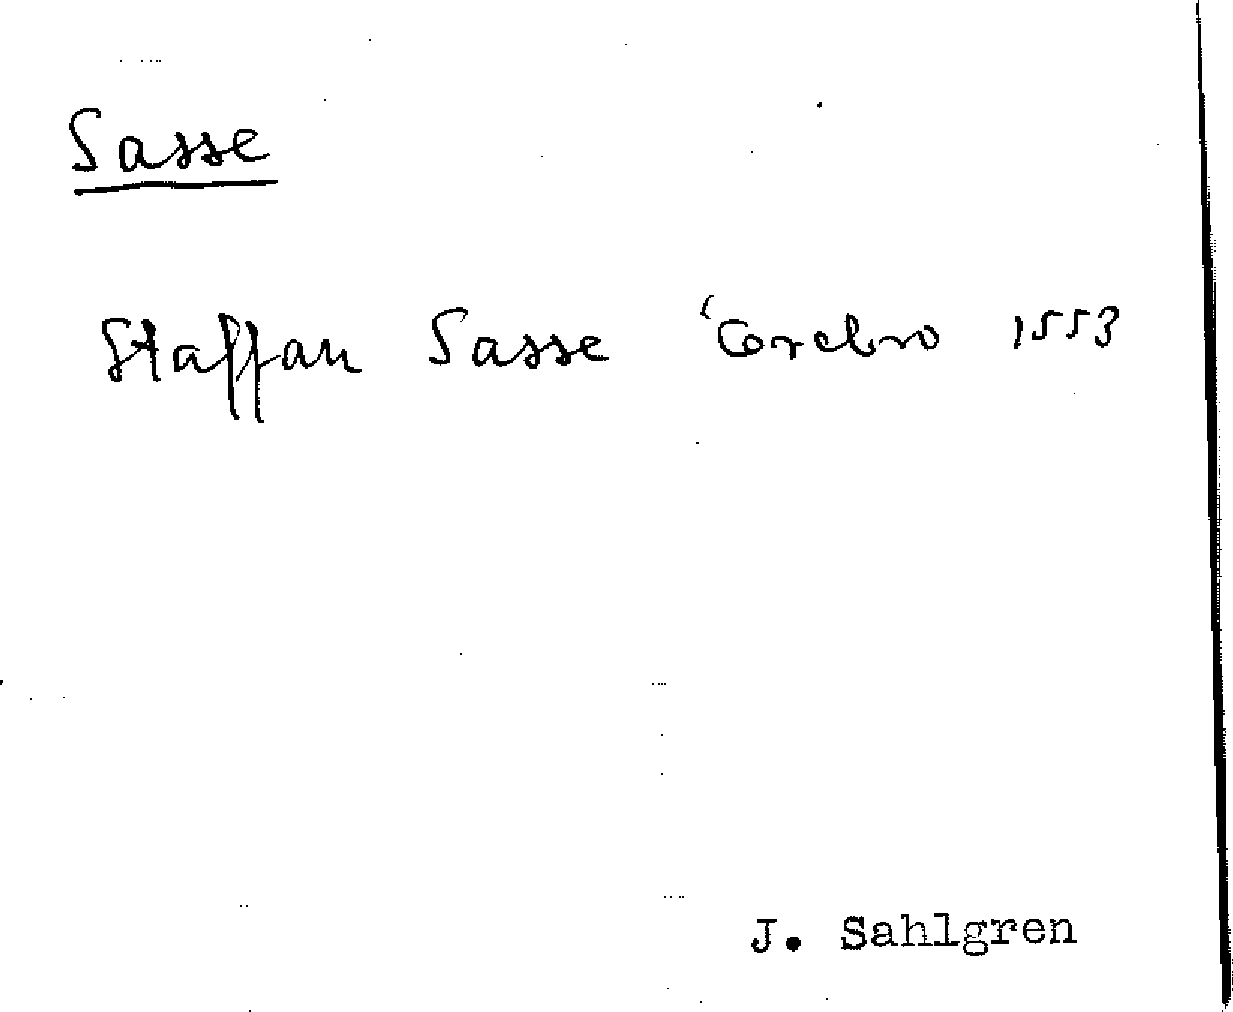 Sasse
Staffan Sasse Örebro 1553
J. Sahlgren